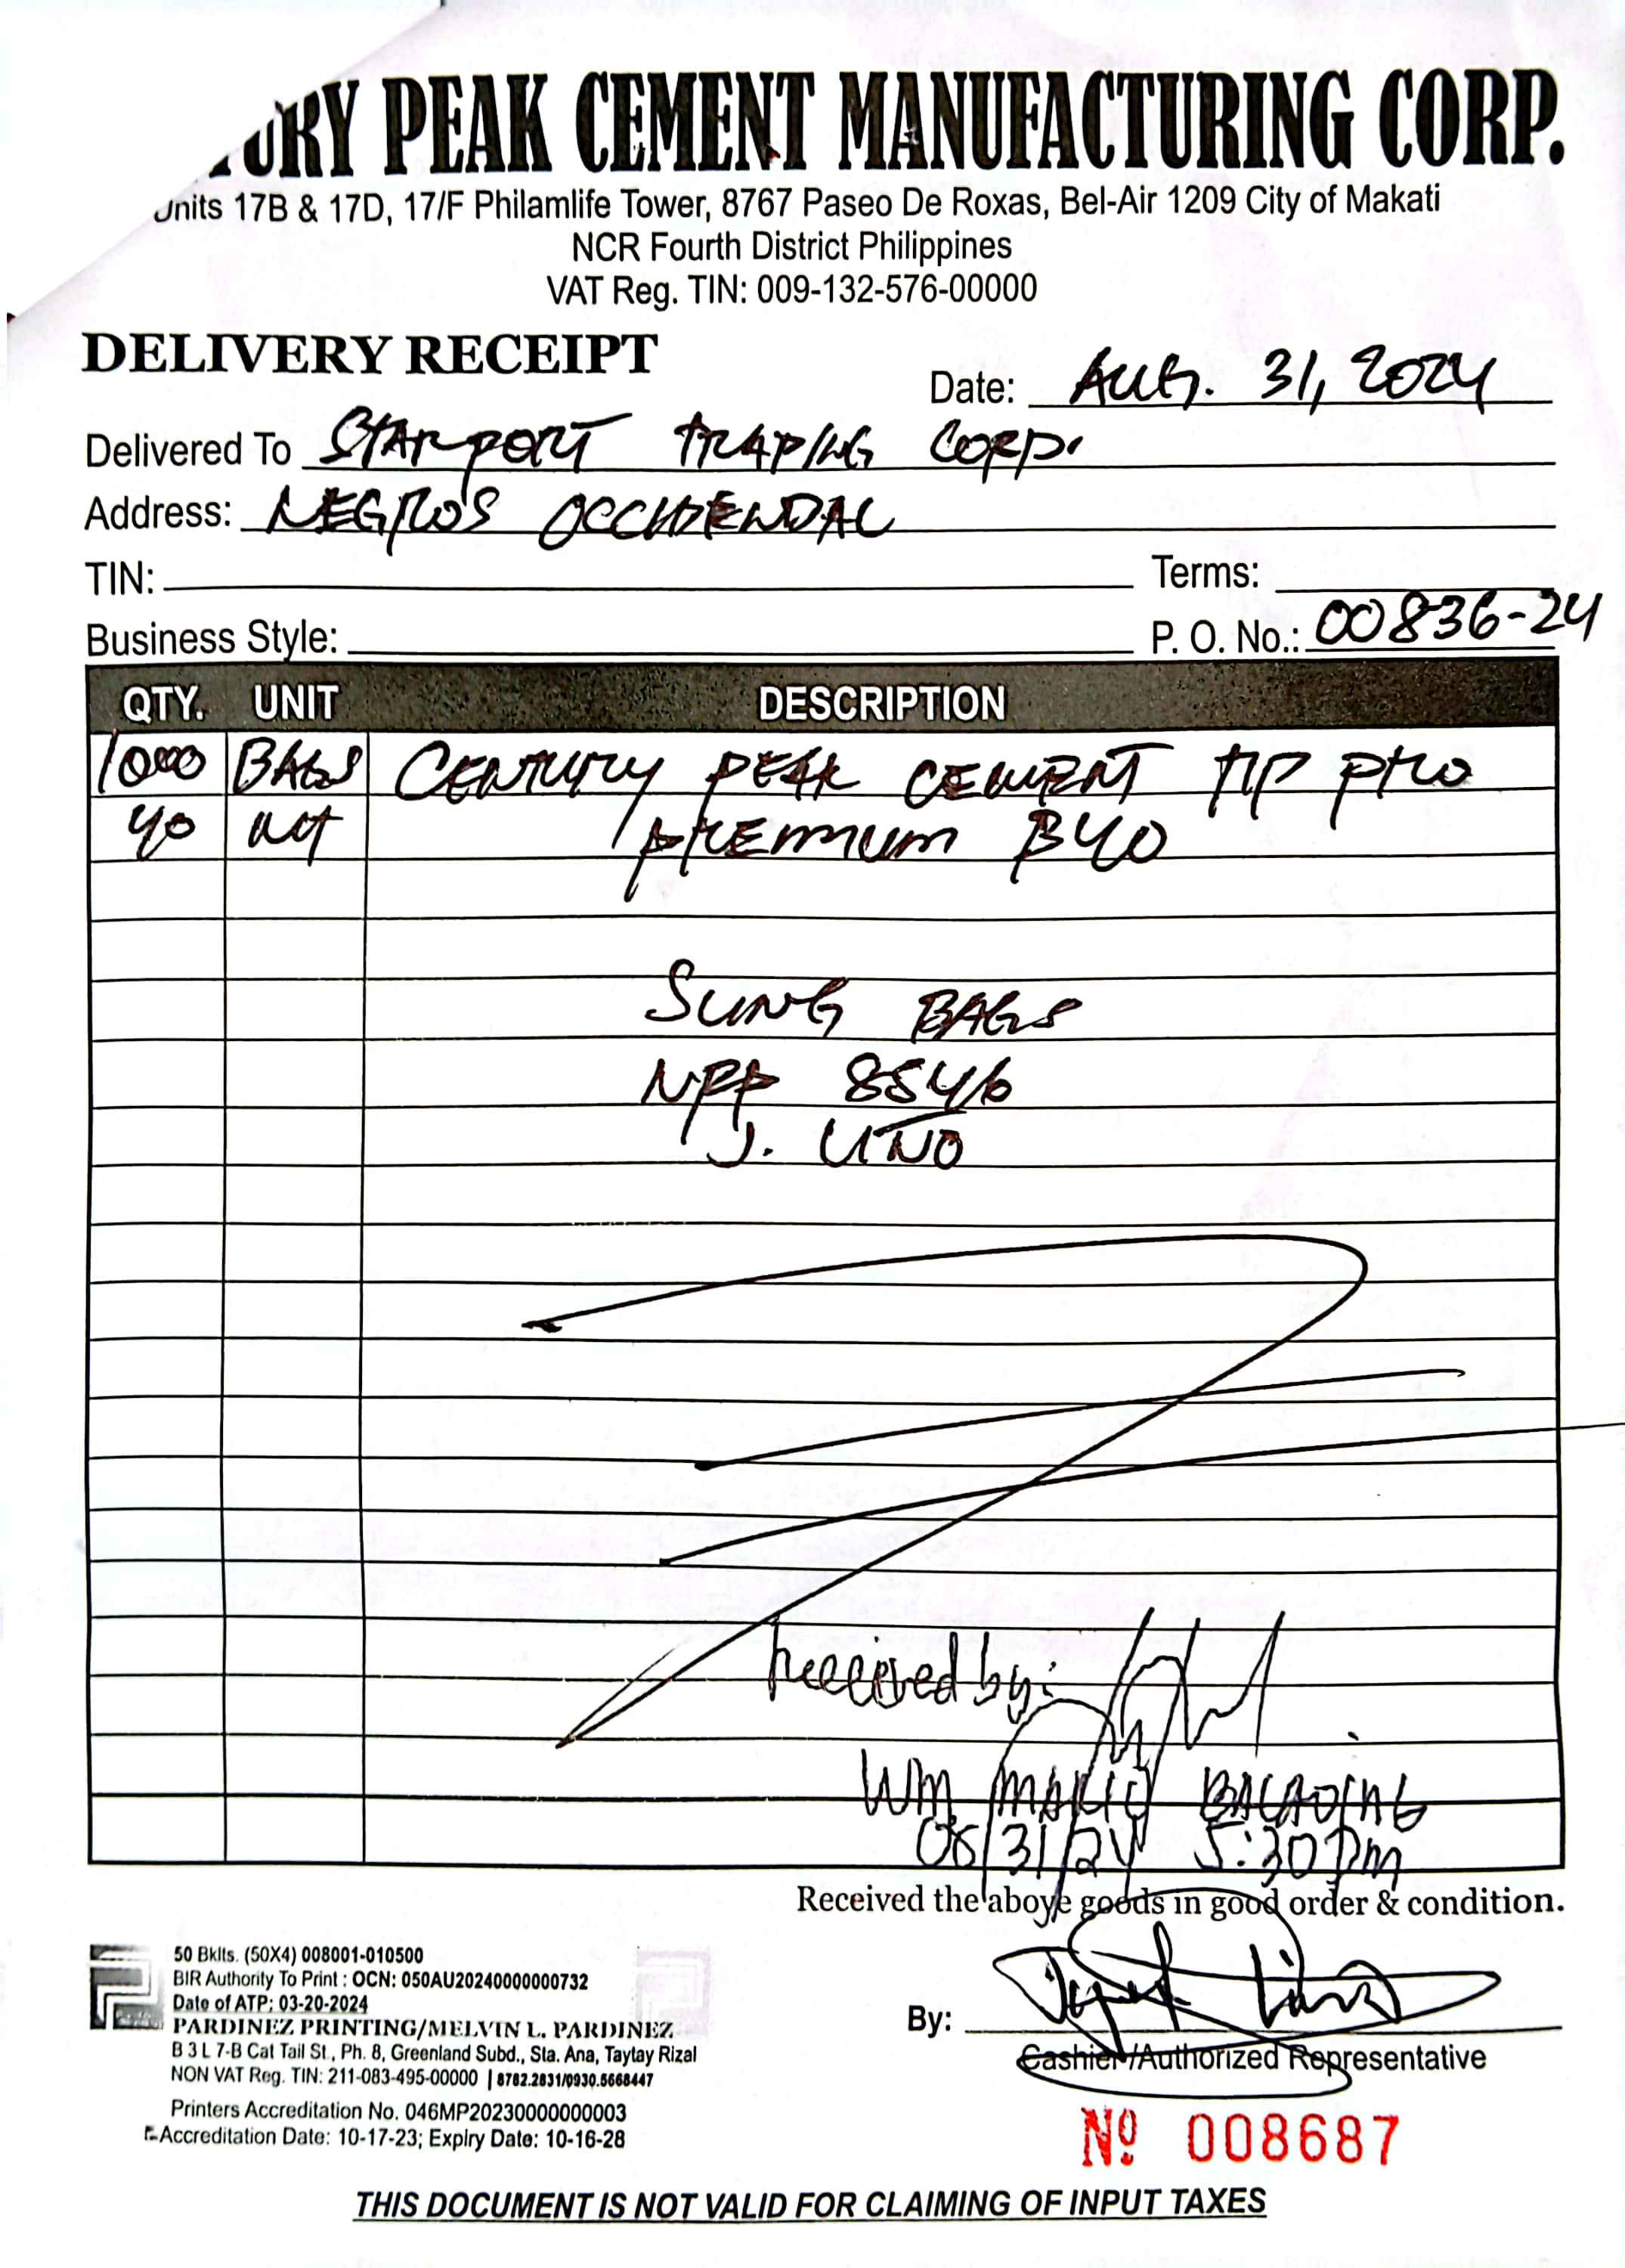 URY PEAK CEMENT MANUFACTURING CORP.
Units 17B & 17D, 17/F Philamlife Tower, 8767 Paseo De Roxas, Bel-Air 1209 City of Makati
NCR Fourth District Philippines
VAT Reg. TIN: 009-132-576-00000
DELIVERY RECEIPT
Date: AUG. 31, 2024
Delivered To STARPORT TRADING CORP.
Address: NEGROS OCCIDENDAL
TIN:
Terms:
Business Style:
P. O. No.: 00836-24
QTY. UNIT DESCRIPTION
1000 BAGS CENTURY PEAK CEMENT PRO
40 MT PREMIUM B40
SLING BAGS
8546
J. UNO
Received by:
WM
08/31/24 5:30 PM
Received the above goods in good order & condition.
50 Bklts. (50X4) 008001-010500
BIR Authority To Print : OCN: 050AU20240000000732
Date of ATP: 03-20-2024
PARDINEZ PRINTING/MELVIN L. PARDINEZ
B 3 L 7-B Cat Tail St., Ph. 8, Greenland Subd., Sta. Ana, Taytay Rizal
NON VAT Reg. TIN: 211-083-495-00000 | 8782.2831/0930.5668447
Printers Accreditation No. 046MP20230000000003
Accreditation Date: 10-17-23; Expiry Date: 10-16-28
By:
Cashier/Authorized Representative
Nº 008687
THIS DOCUMENT IS NOT VALID FOR CLAIMING OF INPUT TAXES